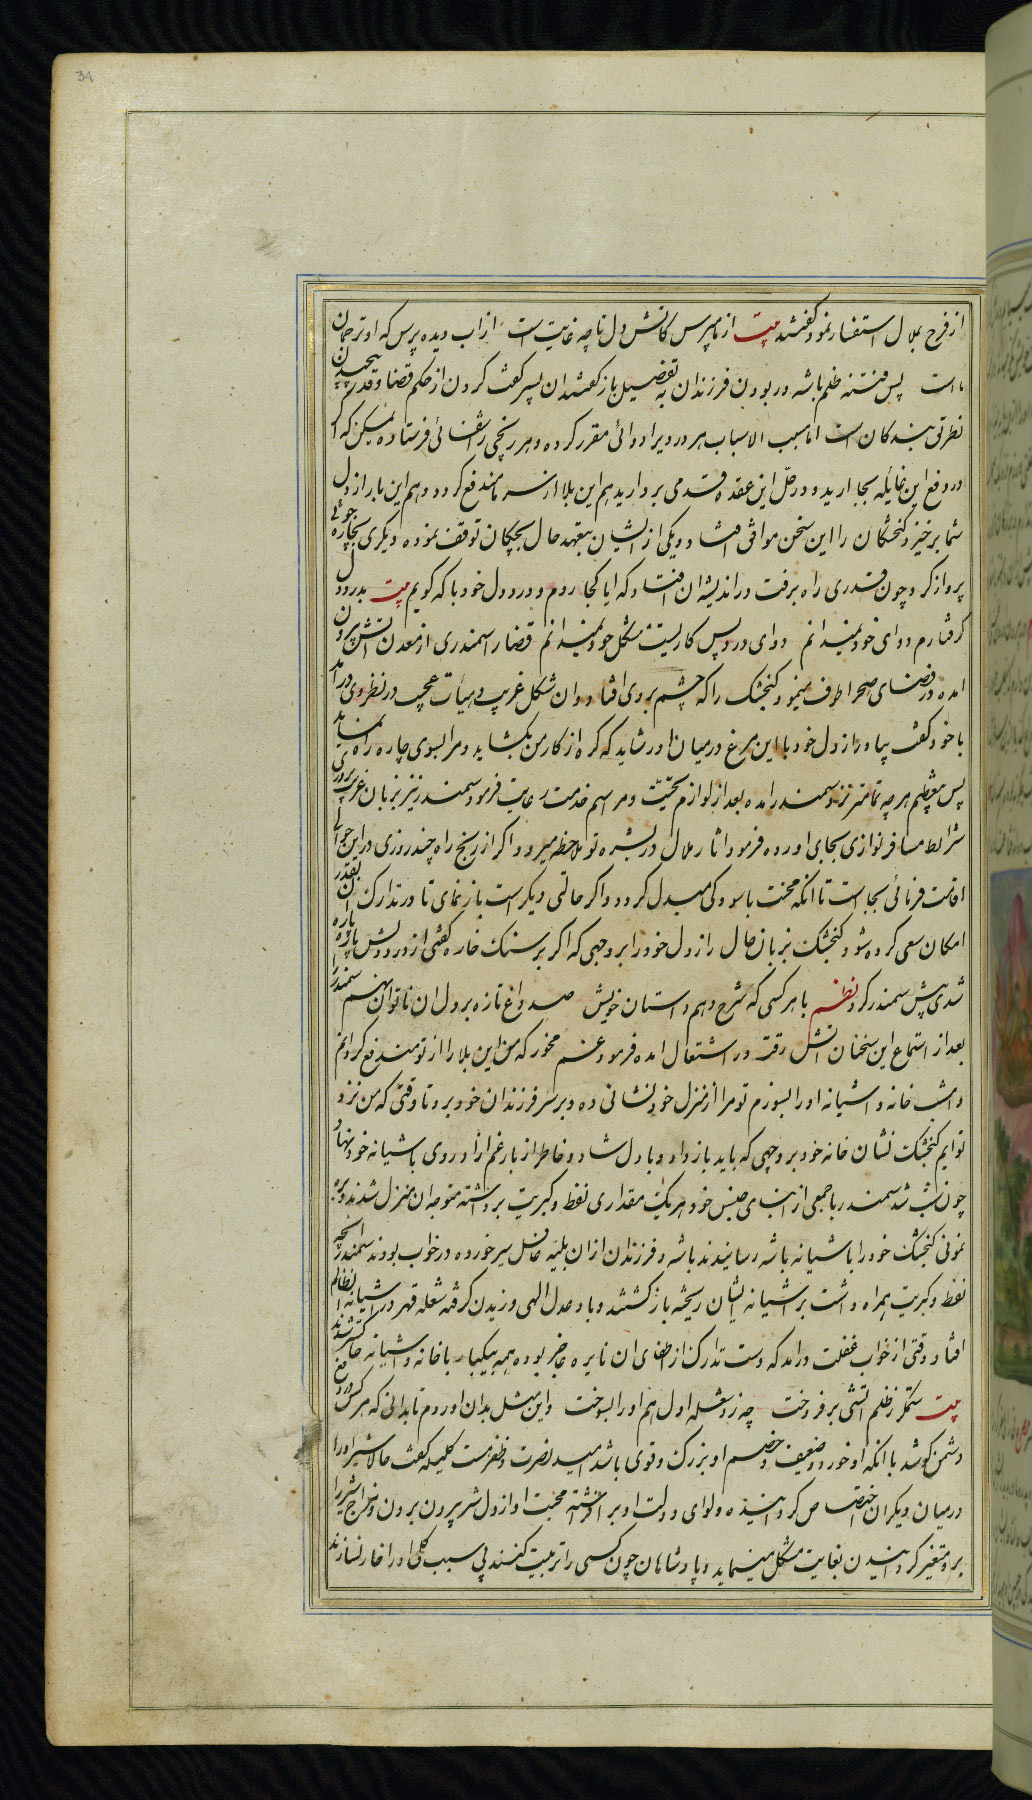 34
از فرح بملال استفسار نمود گفتند بیت از ما مپرس کاتش دل تا چه غایت است از آب دیده پرس که او ترجمان
ماست پس فتنه ظلم باشه در ربودن فرزندان به تفصیل باز گفتند آن پسر گفت گردن از حکم قضا و قدر پیچیدن
نه طریق بندگان است اما مسبب الاسباب هر دردی را دوائی مقرر کرده و هر رنجی را شفائی فرستاده لیکن که اگر
در دفع این غایله بجا آرید و در حل این عقده قدمی بردارید هم این بلا از سر ما مندفع گردد و هم این بار از دل
شما برخیزد گنجشگان را این سخن موافق افتاد و یکی از ایشان بتعهد حال بچگان توقف نموده و دیگری بچاره جوئی
پرواز کرد چون قدری راه برفت در اندیشه آن افتاد که آیا کجا روم و درد دل خود با که گویم بیت بدرد دل
گرفتارم دوای خود نمیدانم دوای درد دل پس کاریست مشکل چو نمیدانم قضا را سمندری از معدن آتش بیرون
آمده در فضای صحرا طوف مینمود گنجشک را که چشم بر وی افتاد و آن شکل غریب و هیأت عجیب در نظر وی درآمد
با خود گفت بیا و راز دل خود با این مرغ در میان آور شاید که گره از کار من بگشاید و مرا بسوی چاره راه نماید
پس بتعظیم هر چه تمامتر نزد سمندر آمده بعد از لوازم تحیت و مراسم خدمت رعایت فرمود سمندر نیز بزبان غریب پروری
شرایط مسافر نوازی بجای آورده فرمود آثار ملال در بشره تو ملاحظه میرود اگر از رنج راه چند روزی در این حوالی
اقامت فرمائی بجاست تا آنکه محنت باسودگی مبدل گردد و اگر حالتی دیگر است باز نمای تا در تدارک آن بقدر
امکان سعی کرده شود گنجشک بزبان حال راز دل خود را بر وجهی که اگر بر سنگ خاره گفتی از درد دلش پاره پاره
شدی پیش سمندر کرد نظم با هر کسی که شرح دهم داستان خویش صد داغ تازه بر دل آن ناتوان نهم سمندر را
بعد از استماع این سخنان آتش رقت در اشتعال آمده فرمود غم مخور که من این بلا را از تو مندفع گردانم
و امشب خانه و آشیانه او را بسوزم تو مرا از منزل خود نشانی ده و بر سر فرزندان خود برو تا وقتی که من نزد
تو آیم گنجشک نشان خانه خود بر وجهی که باید باز داد و با دل شاد و خاطر از بار غم آزاد روی باشیانه خود نهاد
چون شب شد سمندر با جمعی از ابنای جنس خود هر یک مقداری نفط و کبریت برداشته متوجه آن منزل شدند و برهنمونی
گنجشک خود را باشیانه باشه رسانیدند باشه و فرزندان از آن بلیه غافل سیر خورده در خواب بودند سمندر آنچه
نفط و کبریت همراه داشت بر آشیانه ایشان ریخته باز گشتند و باد عدل الهی وزیدن گرفته شعله قهر در آشیانه آن ظالم
افتاد وقتی از خواب غفلت درآمد که دست تدارک از اطفای آن نایره عاجز بوده همه بیکبار با خانه و آشیانه خاکستر شدند
بیت ستمگر ز ظلم آتشی برفروخت چه زد شعله اول هم او را بسوخت و این مثل بدان آوردم تا بدانی که هر کس در دفع
دشمن کوشد با آنکه او خورد و ضعیف و خصم او بزرگ و قوی باشد امید نصرت و ظفر هست کلیله گفت حالا شیر او را
در میان دیگران اختصاص گردانیده و لوای دولت او برافراشته محبت او از دل شیر بیرون بردن و مزاج شیر را
برو متغیر گردانیدن بغایت مشکل مینماید و پادشاهان چون کسی را تربیت کنند بی سبب کلی او را خار نسازند